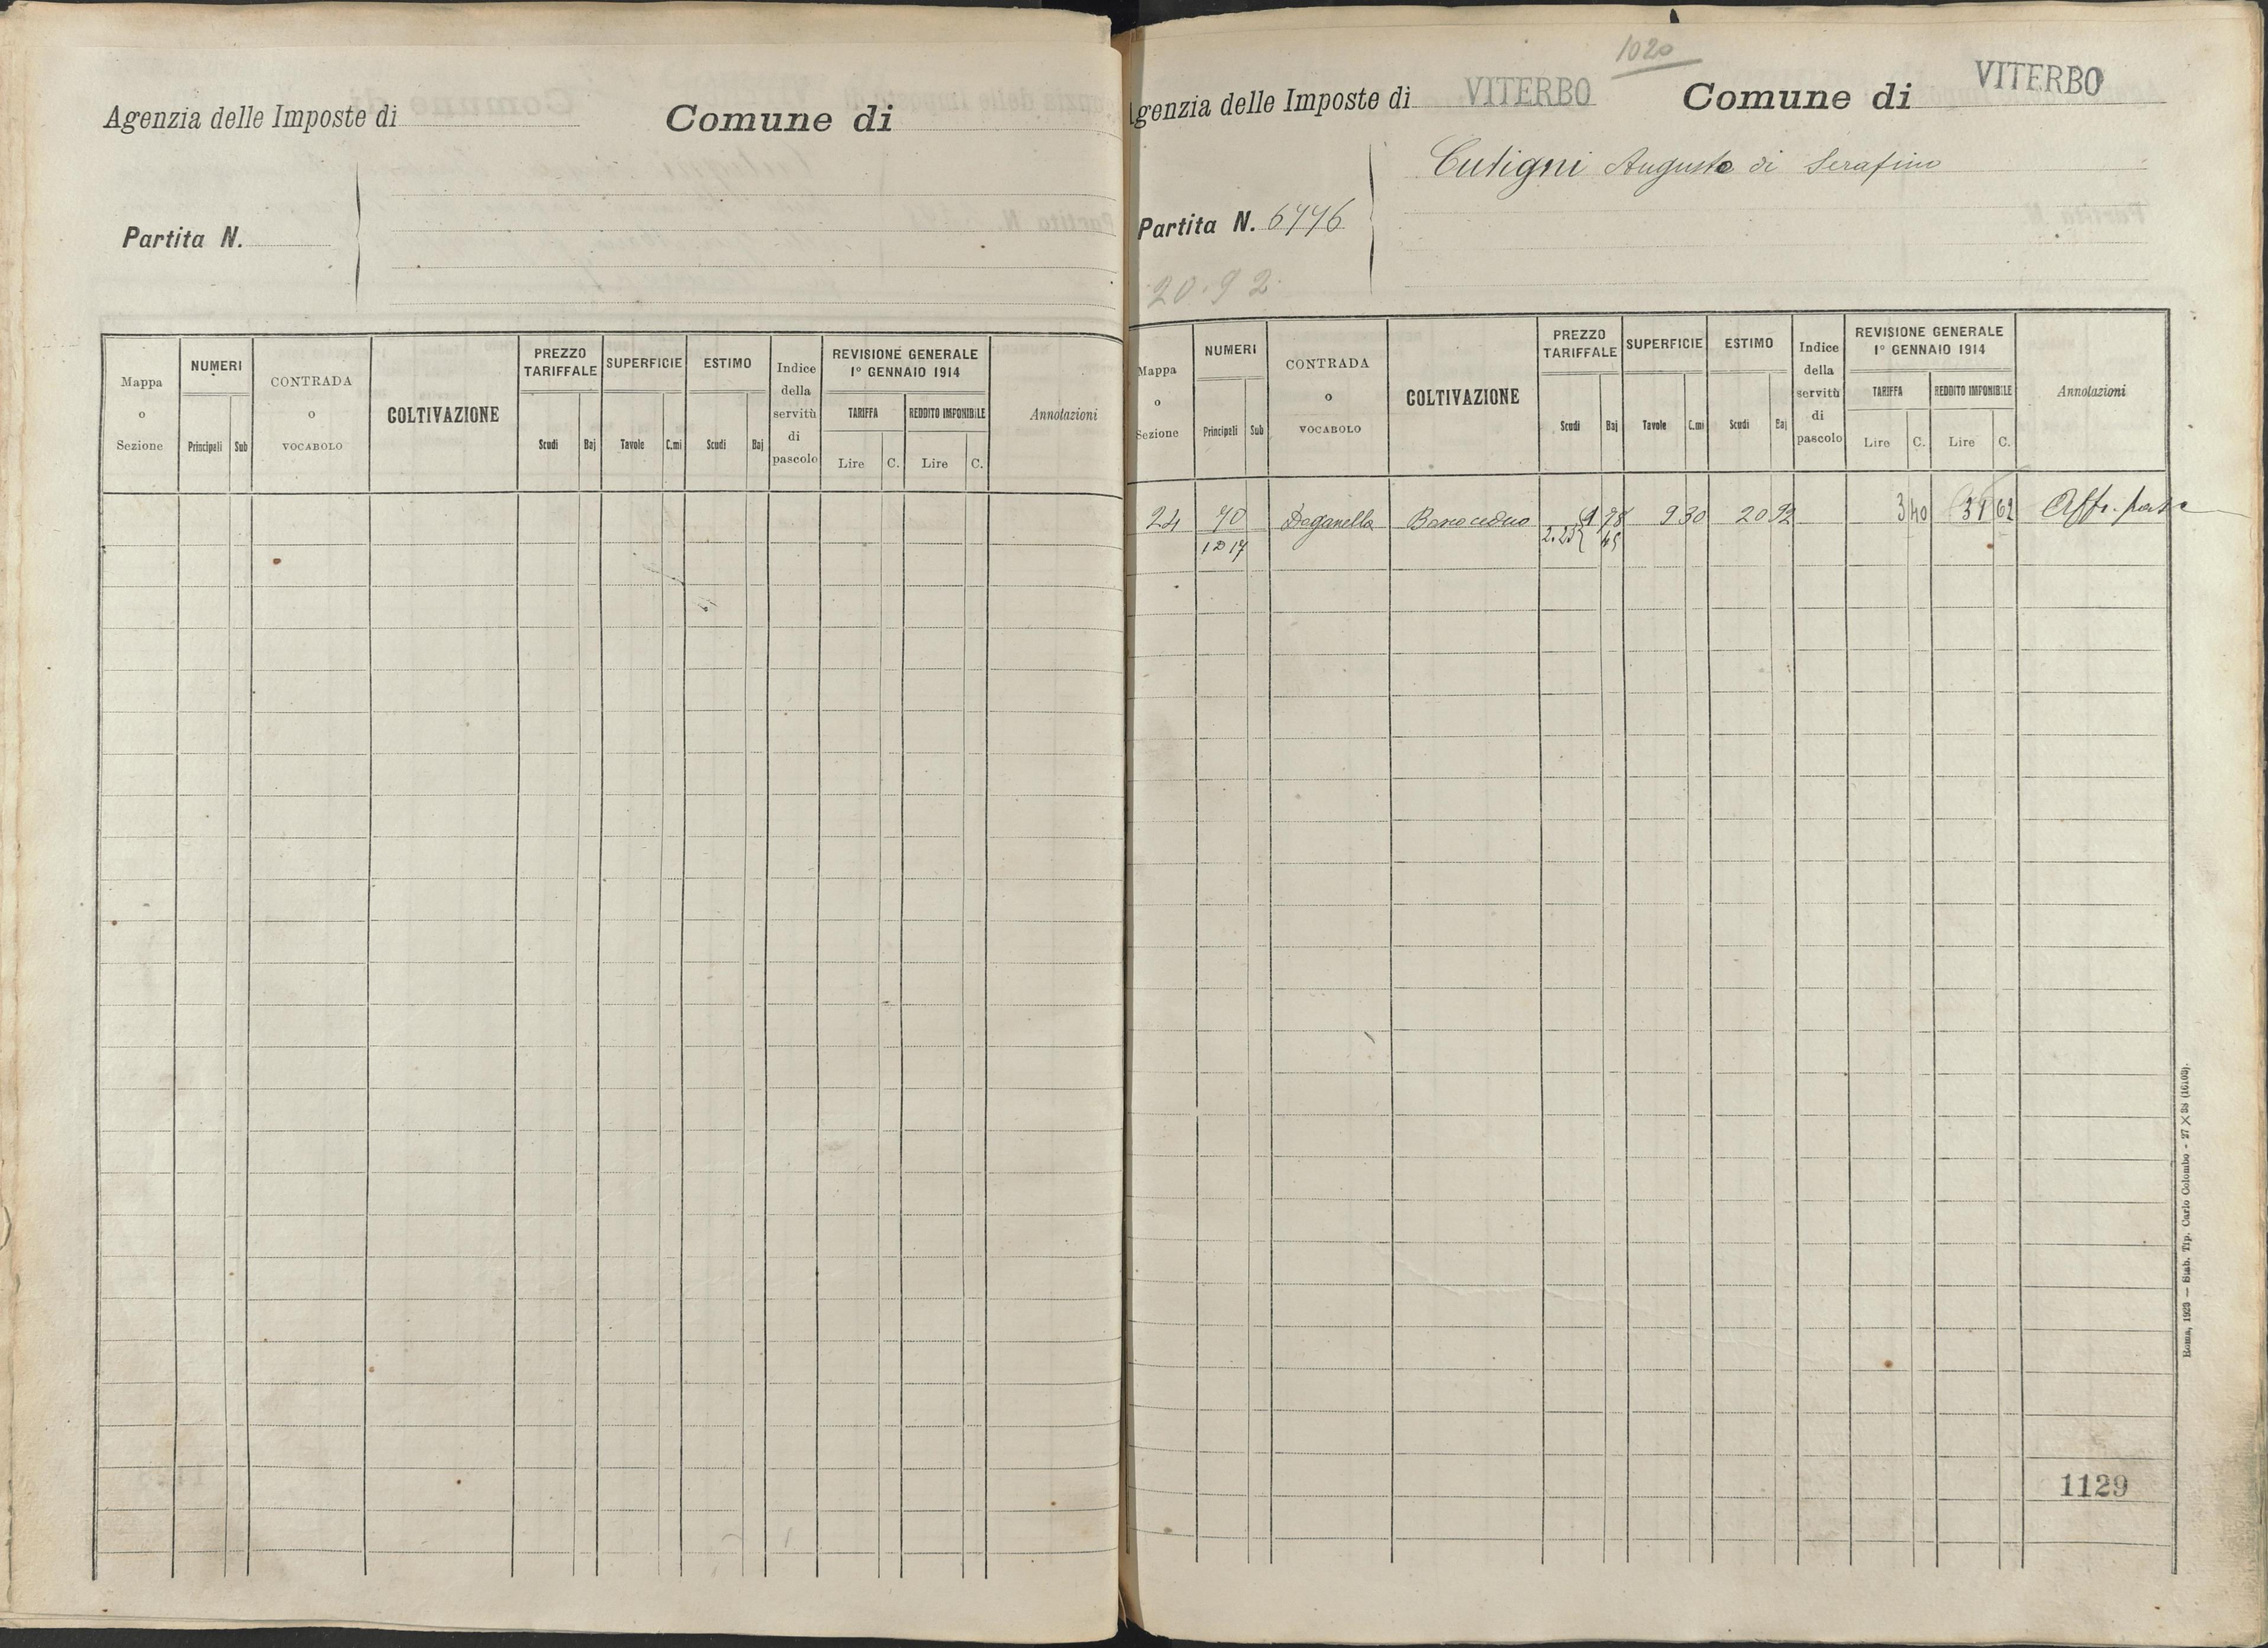 Agenzia delle Imposte di
Comune di
Partita N.
Mappa o Sezione
NUMERI
Principali Sub
CONTRADA o VOCABOLO
COLTIVAZIONE
PREZZO TARIFFALE
Scudi Baj
SUPERFICIE
Tavole C.mi
ESTIMO
Scudi Baj
Indice della servitù di pascolo
REVISIONE GENERALE
1° GENNAIO 1914
TARIFFA REDDITO IMPONIBILE
Lire C. Lire C.
Annotazioni
1020
Agenzia delle Imposte di VITERBO Comune di VITERBO
Cutigni Augusto di Serafino
Partita N. 6776
20.92
Mappa o Sezione
NUMERI
Principali Sub
CONTRADA o VOCABOLO
COLTIVAZIONE
PREZZO TARIFFALE
Scudi Baj
SUPERFICIE
Tavole C.mi
ESTIMO
Scudi Baj
Indice della servitù di pascolo
REVISIONE GENERALE
1° GENNAIO 1914
TARIFFA REDDITO IMPONIBILE
Lire C. Lire C.
Annotazioni
24 70 Daganella 78 9 30 20 92 3 40 31 62
1217 2.25 45
1129
Roma, 1923 — Stab. Tip. Carlo Colombo - 27 X 38 (16103).